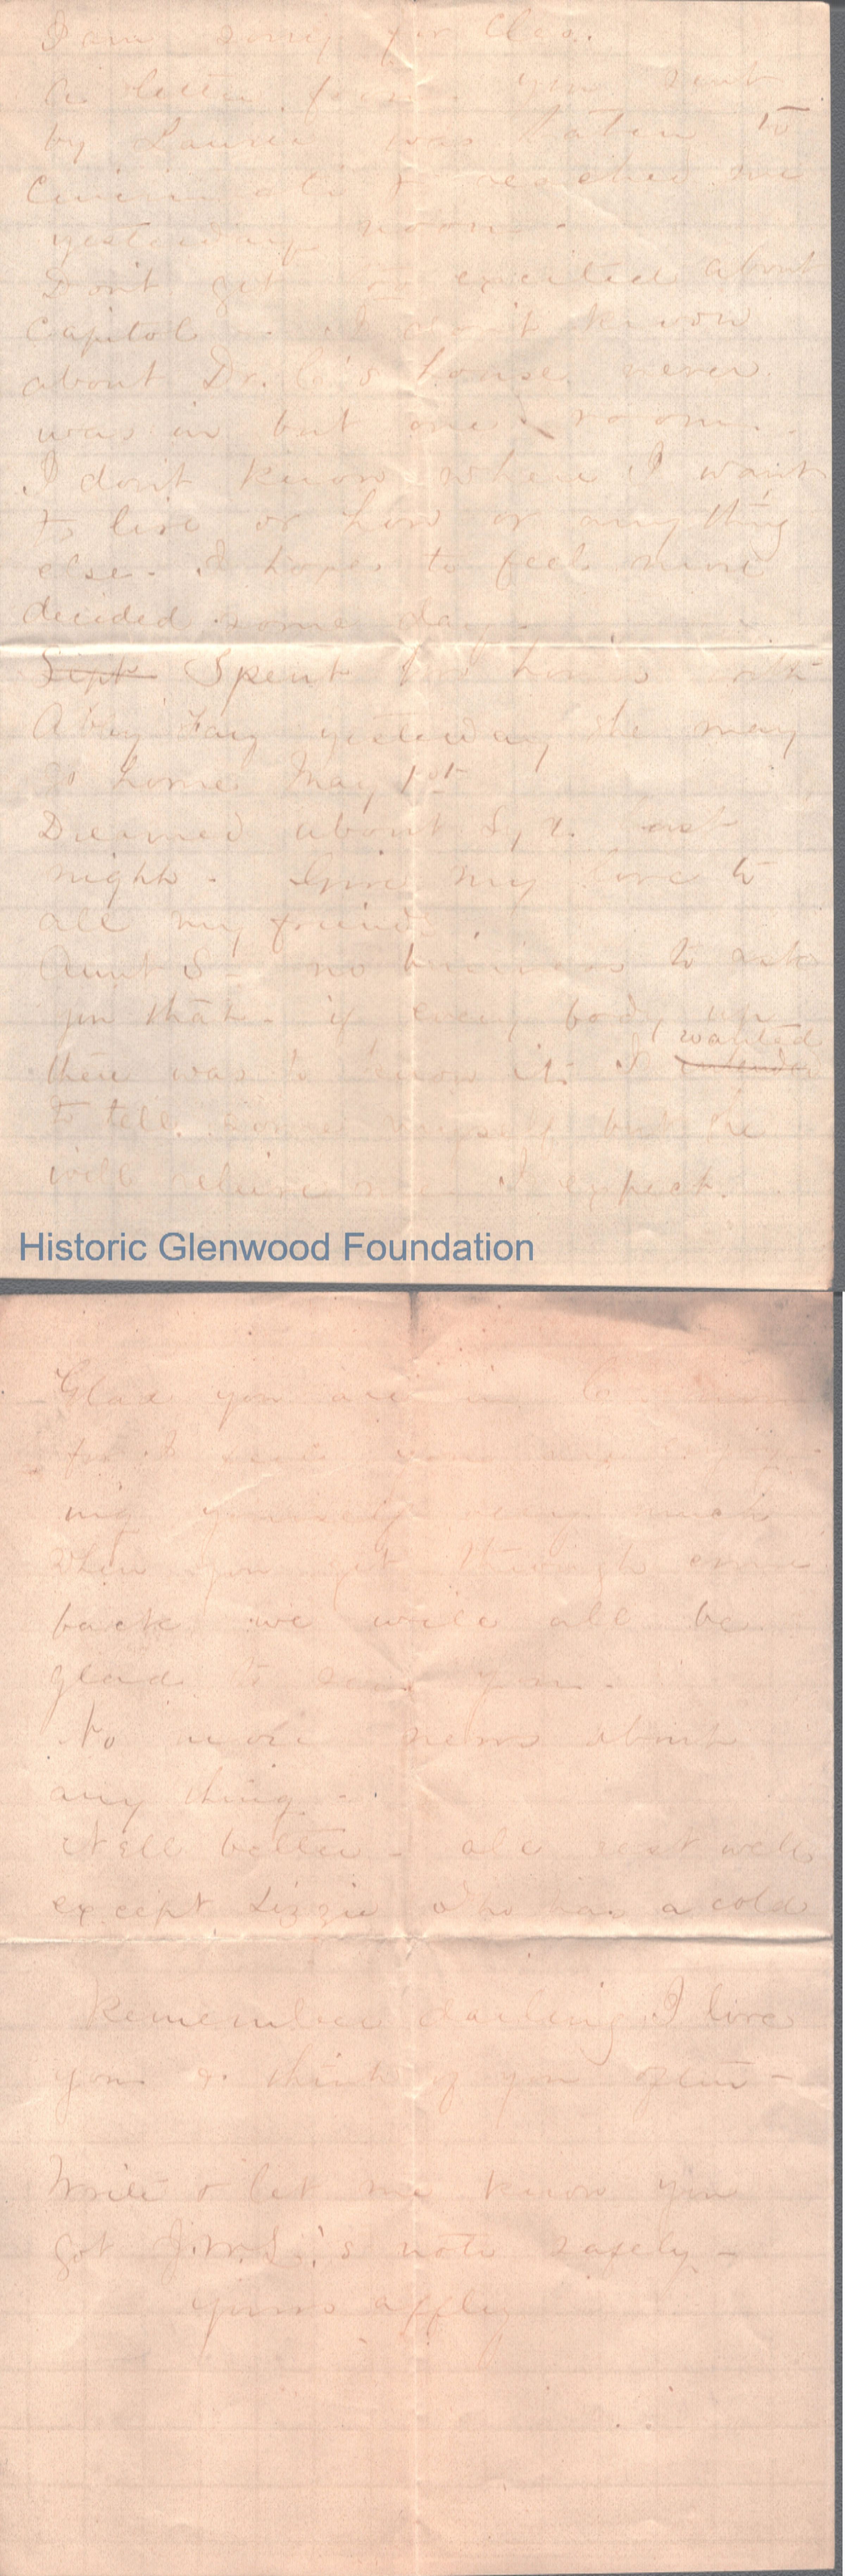 I am sorry for Cleo.
A letter from you sent
by Laurie was taken to
Cincinnati & reached me
yesterday noon -
Don't get so excited about
Capitol - I don't know
about Dr. C's house never
was in but one room.
I don't know where I want
to live or how or any thing
else - I hope to feel more
decided some day -
Sept Spent two hours with
Abby Fay yesterday, she may
go home May 1st
Dreamed about Syd. last
night - Give my love to
all my friends
Aunt S - no business to ask
you that - if every body up
wanted
there was to know it, I intended
to tell some myself but she
will relieve me I expect.
Historic Glenwood Foundation
Glad you are in
for I know you are enjoy
ing yourself very much
When you get through come
back we will all be
glad to see you -
No more news about
any thing -
Nell better - all rest well
except Lizzie who has a cold
Remember darling I love
you & think of you often -
Write & let me know you
got J.W.L.'s note safely -
Yours affly